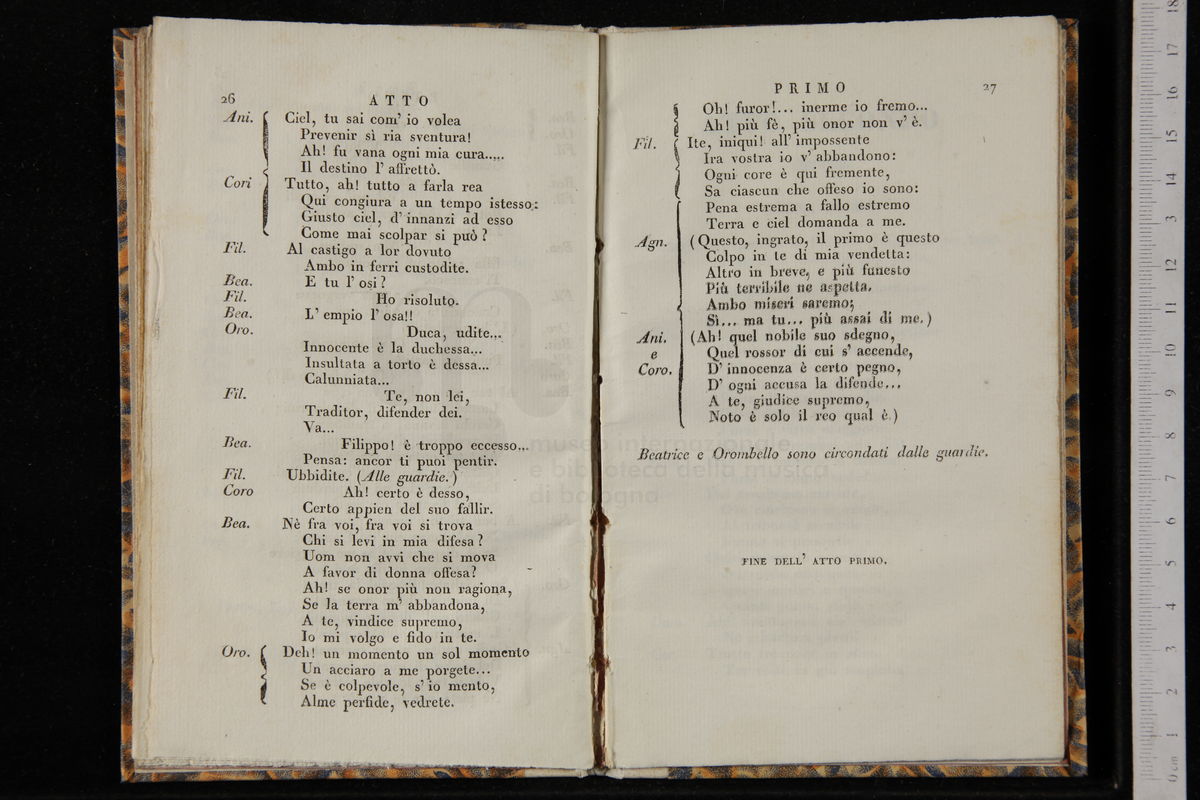 26
ATTO
Ani. Ciel, tu sai com' io volea
Prevenir sì ria sventura!
Ah! fu vana ogni mia cura.....
Il destino l' affrettò.
Cori Tutto, ah! tutto a farla rea
Qui congiura a un tempo istesso:
Giusto ciel, d' innanzi ad esso
Come mai scolpar si può?
Fil. Al castigo a lor dovuto
Ambo in ferri custodite.
Bea. E tu l' osi?
Fil. Ho risoluto.
Bea. L' empio l' osa!!
Oro. Duca, udite...
Innocente è la duchessa...
Insultata a torto è dessa...
Calunniata...
Fil. Te, non lei,
Traditor, difender dei.
Va...
Bea. Filippo! è troppo eccesso...
Pensa: ancor ti puoi pentir.
Fil. Ubbidite. (Alle guardie.)
Coro Ah! certo è desso,
Certo appien del suo fallir.
Bea. Nè fra voi, fra voi si trova
Chi si levi in mia difesa?
Uom non avvi che si mova
A favor di donna offesa?
Ah! se onor più non ragiona,
Se la terra m' abbandona,
A te, vindice supremo,
Io mi volgo e fido in te.
Oro. Deh! un momento un sol momento
Un acciaro a me porgete...
Se è colpevole, s' io mento,
Alme perfide, vedrete.
PRIMO
27
Oh! furor!... inerme io fremo...
Ah! più fè, più onor non v' è.
Fil. Ite, iniqui! all' impossente
Ira vostra io v' abbandono:
Ogni core è qui fremente,
Sa ciascun che offeso io sono:
Pena estrema a fallo estremo
Terra e ciel domanda a me.
Agn. (Questo, ingrato, il primo è questo
Colpo in te di mia vendetta:
Altro in breve, e più funesto
Più terribile ne aspetta.
Ambo miseri saremo;
Sì... ma tu... più assai di me.)
Ani. (Ah! quel nobile suo sdegno,
e Quel rossor di cui s' accende,
Coro. D' innocenza è certo pegno,
D' ogni accusa la difende...
A te, giudice supremo,
Noto è solo il reo qual è.)
Beatrice e Orombello sono circondati dalle guardie.
FINE DELL' ATTO PRIMO.
museo internazionale
e biblioteca della musica
di bologna
0 cm 1 2 3 4 5 6 7 8 9 10 11 12 13 14 15 16 17 18